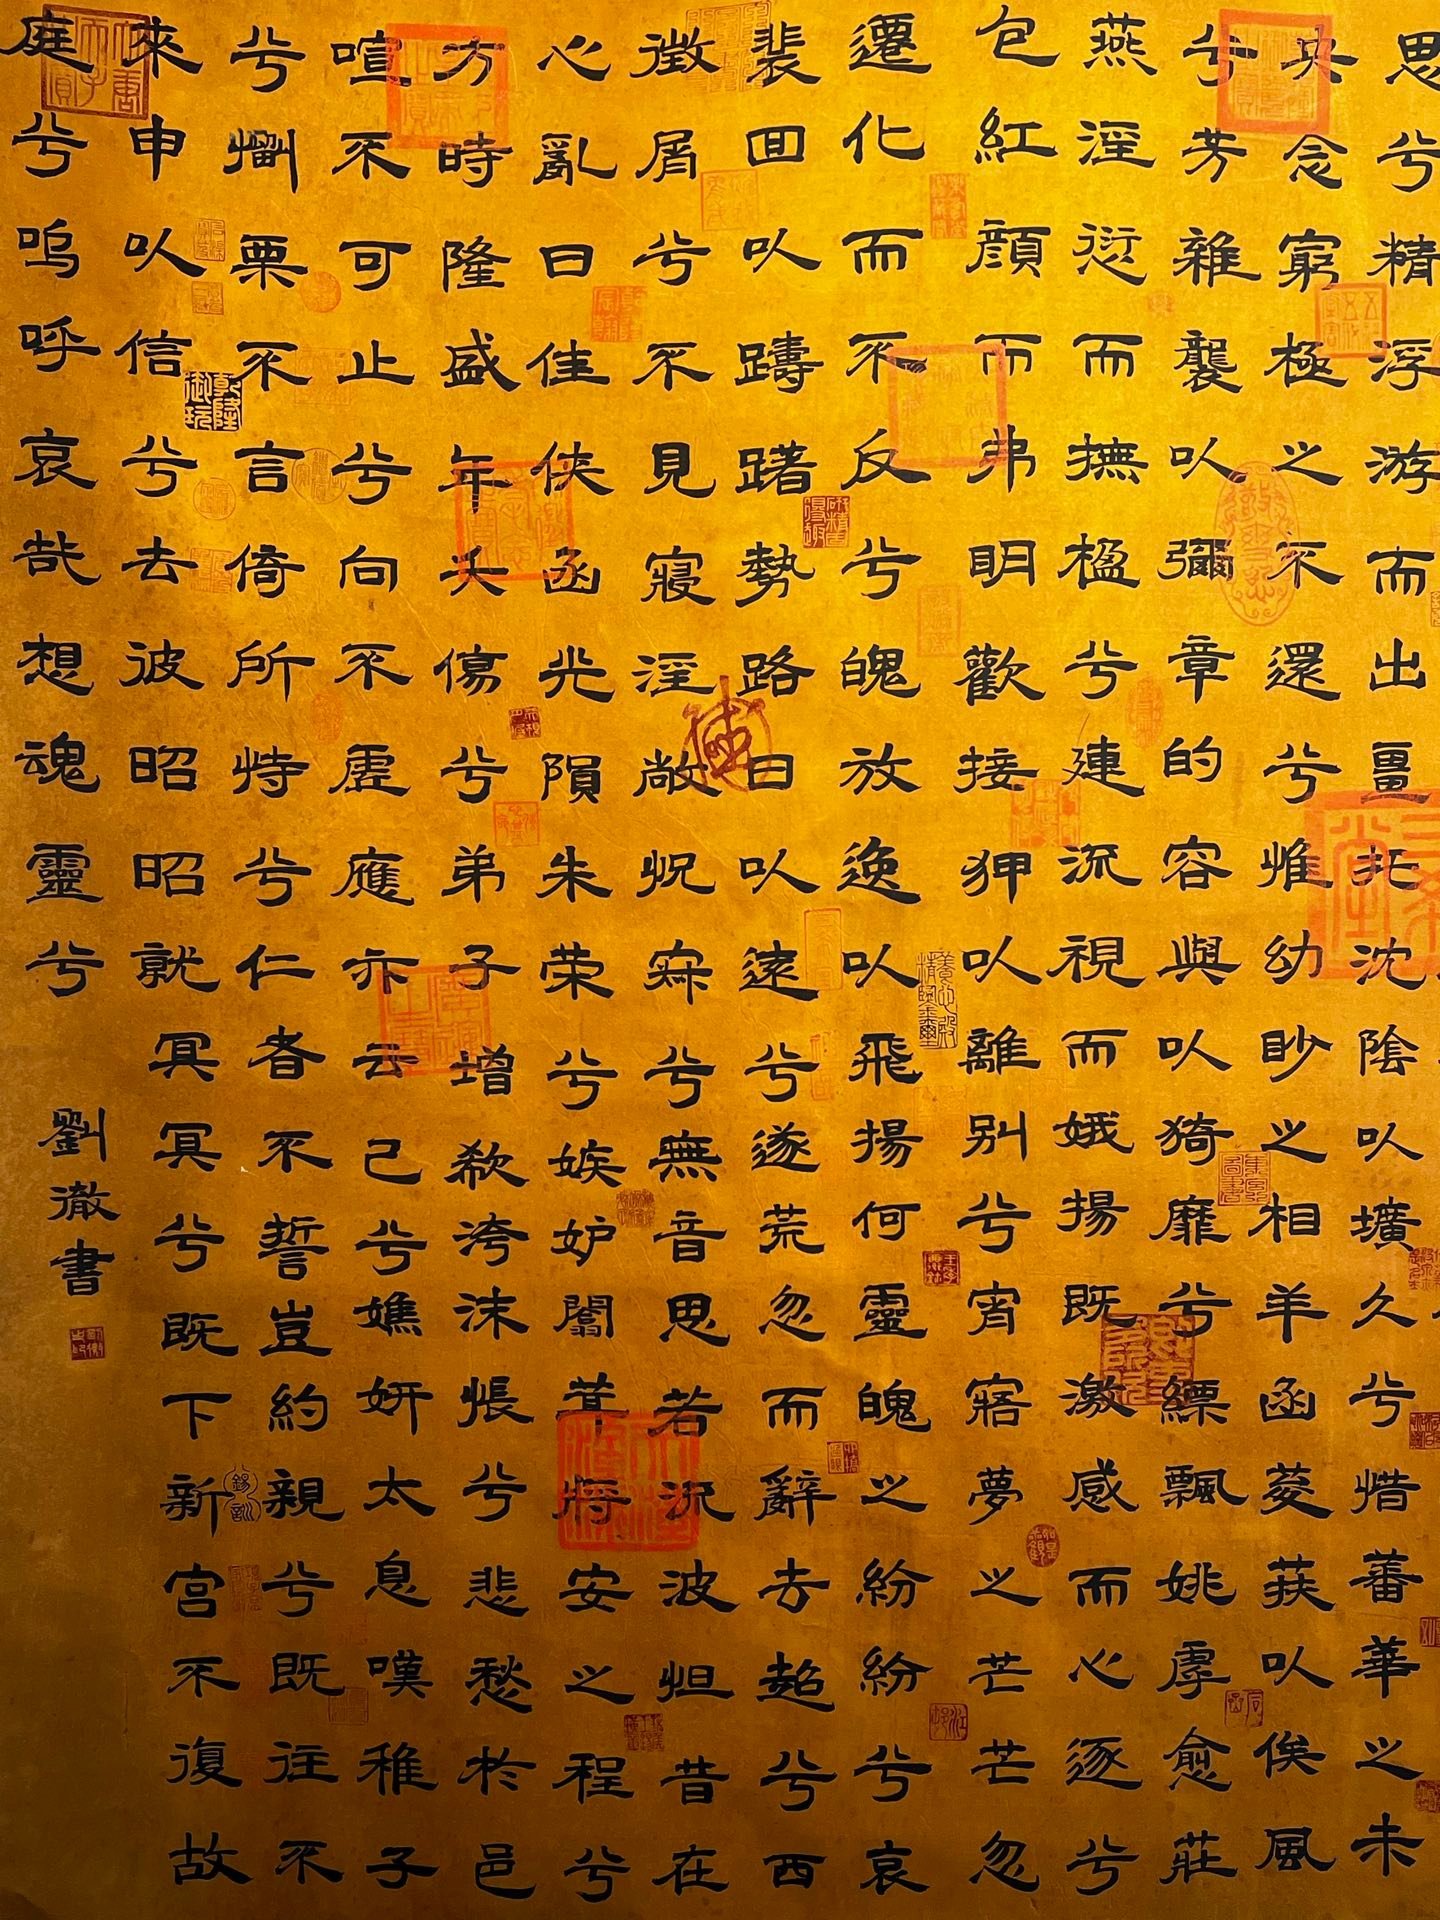 思兮精浮游而出畺托沈陰以壙久兮惜蕃華之未
央念窮極之不還兮惟幼眇之相羊函菱荴以俟風
兮芳雜襲以彌章的容與以猗靡兮縹飄姚虖愈莊
燕淫衍而撫楹兮連流視而娥揚既激感而心逐兮
包紅顏而弗明歡接狎以離別兮宵寤夢之芒芒忽
遷化而不反兮魄放逸以飛揚何靈魄之紛紛兮哀
裴回以躊躇勢路日以遠兮遂荒忽而辭去超兮西
徵屑兮不見寢淫敞怳寂兮無音思若流波怛昔在
心亂曰佳俠函光隕朱榮兮嫉妒闒茸將安之程兮
方時隆盛年夭傷兮弟子增欷洿沫悵兮悲愁於邑
喧不可止兮向不虛應亦云己兮嫶妍太息嘆稚子
兮懰栗不言倚所恃兮仁者不誓豈約親兮既往不
來申以信兮去彼昭昭就冥冥兮既下新宮不復故
庭兮嗚呼哀哉想魂靈兮
劉徹書